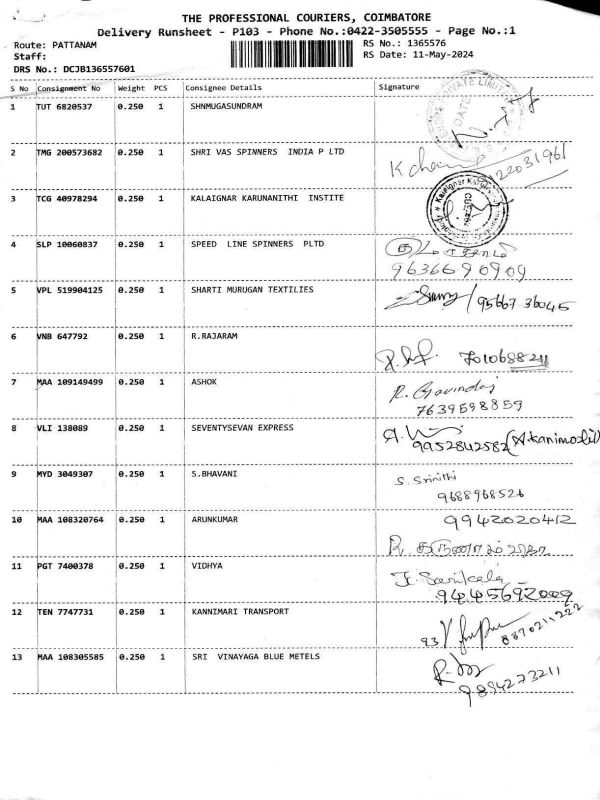 THE PROFESSIONAL COURIERS, COIMBATORE
Delivery Runsheet - P103 - Phone No.:0422-3505555 - Page No.:1
Route: PATTANAM RS No.: 1365576
Staff: RS Date: 11-May-2024
DRS No.: DCJB136557601
S No Consignment No Weight PCS Consignee Details Signature
1 TUT 6820537 0.250 1 SHNMUGASUNDRAM
2 TMG 200573682 0.250 1 SHRI VAS SPINNERS INDIA P LTD
22031961
3 TCG 40978294 0.250 1 KALAIGNAR KARUNANITHI INSTITE
4 SLP 10060837 0.250 1 SPEED LINE SPINNERS PLTD
9636690909
5 VPL 519904125 0.250 1 SHARTI MURUGAN TEXTILIES
95667 36045
6 VNB 647792 0.250 1 R.RAJARAM
7010688211
7 MAA 109149499 0.250 1 ASHOK
R. Govindaj
7639598859
8 VLI 138089 0.250 1 SEVENTYSEVAN EXPRESS
9952842582 (A.kanimozhi)
9 MYD 3049307 0.250 1 S.BHAVANI
S. Srinithi
9688968526
10 MAA 108320764 0.250 1 ARUNKUMAR
9942020412
11 PGT 7400378 0.250 1 VIDHYA
J. Sasikala
9445692009
12 TEN 7747731 0.250 1 KANNIMARI TRANSPORT
8870211222
13 MAA 108305585 0.250 1 SRI VINAYAGA BLUE METELS
9894273211